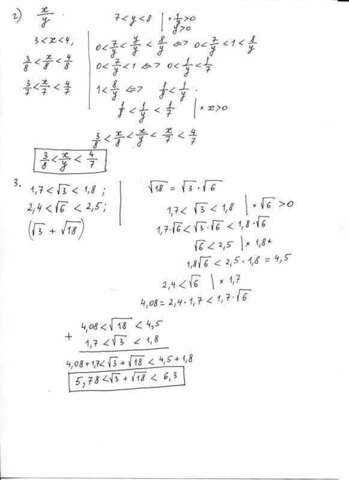 2) x/y
3 < x < 4,
3/8 < x/8 < 4/8
3/7 < x/7 < 4/7
7 < y < 8 | · 1/y > 0
y > 0
0 < 7/y < y/y < 8/y ⇔ 0 < 7/y < 1 < 8/y
0 < 7/y < 1 ⇔ 0 < 1/y < 1/7
1 < 8/y ⇔ 1/8 < 1/y
1/8 < 1/y < 1/7 | · x > 0
3/8 < x/8 < x/y < x/7 < 4/7
3/8 < x/y < 4/7
3.
1,7 < √3 < 1,8 ;
2,4 < √6 < 2,5 ;
(√3 + √18)
√18 = √3 · √6
1,7 < √3 < 1,8 | · √6 > 0
1,7·√6 < √3·√6 < 1,8·√6
√6 < 2,5 | · 1,8
1,8√6 < 2,5 · 1,8 = 4,5
2,4 < √6 | · 1,7
4,08 = 2,4 · 1,7 < 1,7·√6
+ 4,08 < √18 < 4,5
1,7 < √3 < 1,8
4,08 + 1,7 < √3 + √18 < 4,5 + 1,8
5,78 < √3 + √18 < 6,3